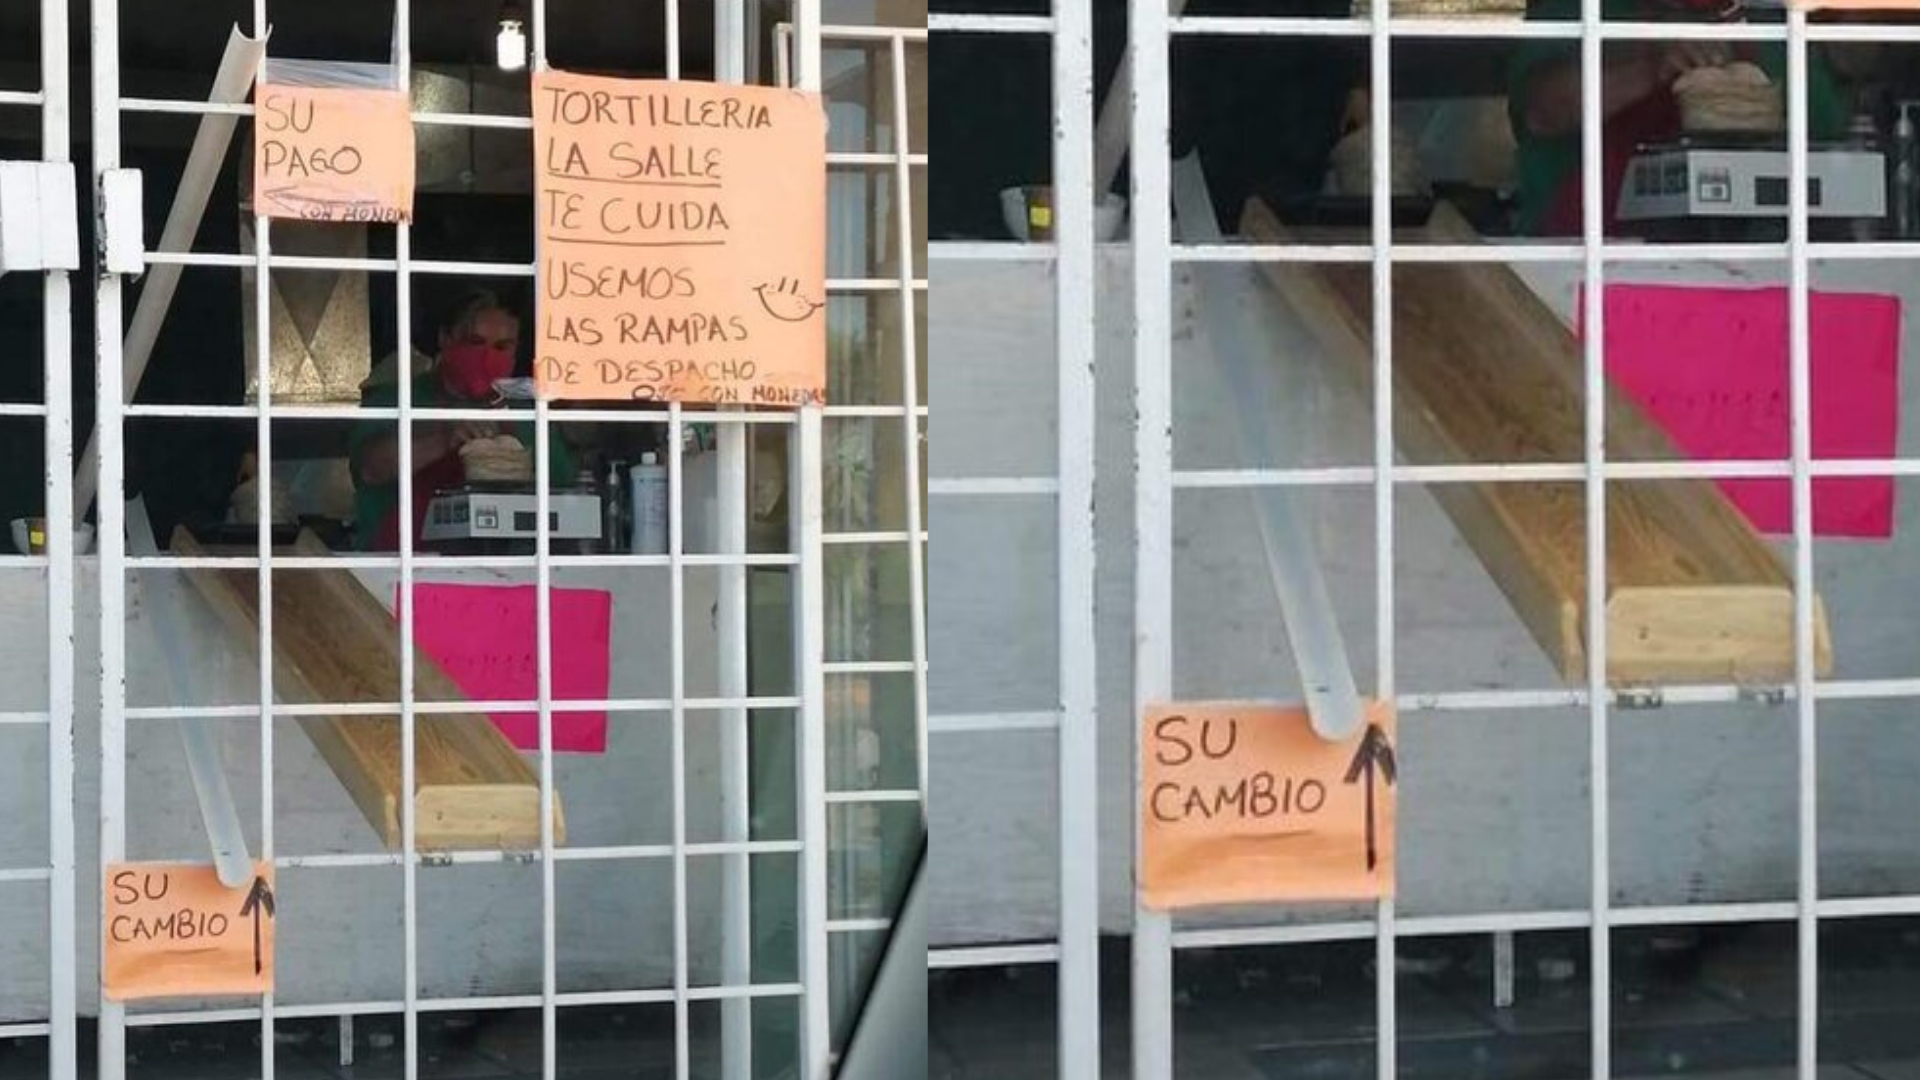 SU
PAGO
CON MONEDA
TORTILLERIA
LA SALLE
TE CUIDA
USEMOS
LAS RAMPAS
DE DESPACHO
CON MONEDAS
SU
CAMBIO
SU
CAMBIO